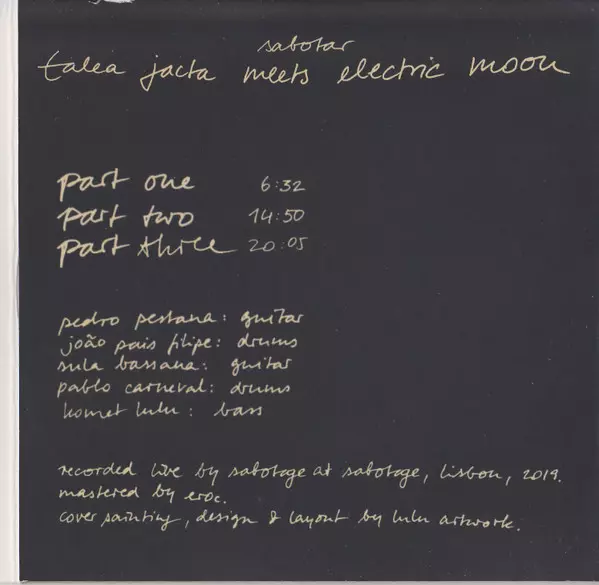 sabotar
talea jacta meets electric moon
part one 6:32
part two 14:50
part three 20:05
pedro pestana: guitar
joão pais filipe: drums
sula bassana: guitar
pablo carneval: drums
komet lulu: bass
recorded live by sabotage at sabotage, lisbon, 2019.
mastered by eroc.
cover painting, design & layout by lulu artwork.